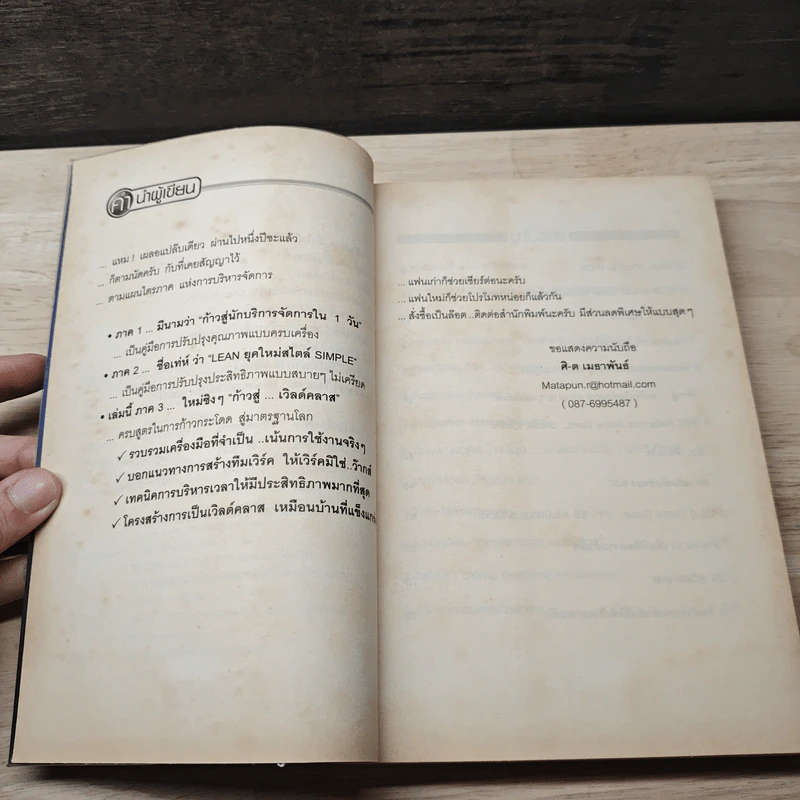 คำนำผู้เขียน
... แหม ! เผลอแปล๊บเดียว ผ่านไปหนึ่งปีซะแล้ว
... ก็ตามนัดครับ กับที่เคยสัญญาไว้
... ตามแผนไตรภาค แห่งการบริหารจัดการ
• ภาค 1 ... มีนามว่า "ก้าวสู่นักบริการจัดการใน 1 วัน"
... เป็นคู่มือการปรับปรุงคุณภาพแบบครบเครื่อง
• ภาค 2 ... ชื่อเท่ห์ ว่า "LEAN ยุคใหม่สไตล์ SIMPLE"
... เป็นคู่มือการปรับปรุงประสิทธิภาพแบบสบายๆ ไม่เครียด
• เล่มนี้ ภาค 3 ... ใหม่ซิงๆ "ก้าวสู่ ... เวิลด์คลาส"
... ครบสูตรในการก้าวกระโดด สู่มาตรฐานโลก
✓ รวบรวมเครื่องมือที่จำเป็น ..เน้นการใช้งานจริงๆ
✓ บอกแนวทางการสร้างทีมเวิร์ค ให้เวิร์คมิใช่..ว๊ากส์
✓ เทคนิคการบริหารเวลาให้มีประสิทธิภาพมากที่สุด
✓ โครงสร้างการเป็นเวิลด์คลาส เหมือนบ้านที่แข็งแกร่ง
... แฟนเก่าก็ช่วยเชียร์ต่อนะครับ
... แฟนใหม่ก็ช่วยโปรโมทหน่อยก็แล้วกัน
... สั่งซื้อเป็นล๊อต ..ติดต่อสำนักพิมพ์นะครับ มีส่วนลดพิเศษให้แบบสุดๆ
ขอแสดงความนับถือ
ศิ-ต เมธาพันธ์
Matapun.r@hotmail.com
( 087-6995487 )